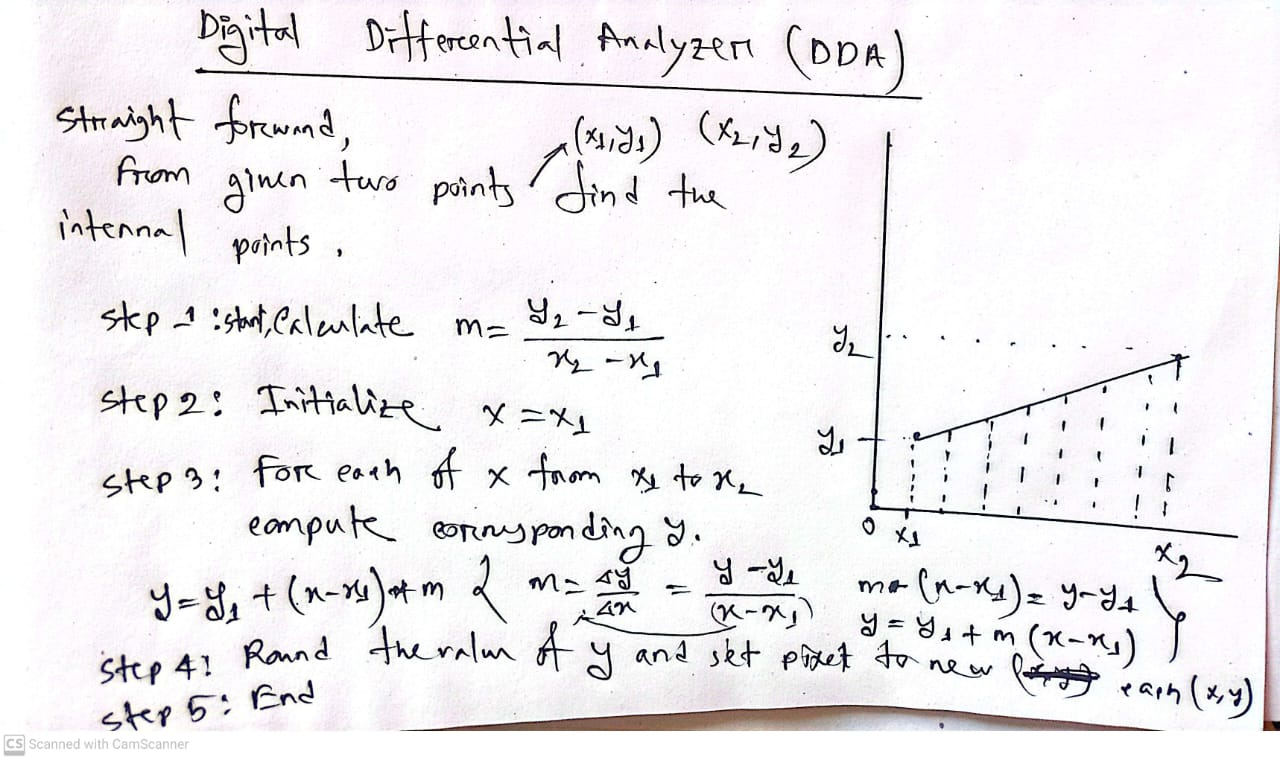 Digital Differential Analyzer (DDA)
Straight forward,
(x₁,y₁) (x₂,y₂)
from given two points find the
internal points,
step 1 : start, Calculate m = (y₂ - y₁) / (x₂ - x₁)
step 2 : Initialize x = x₁
step 3 : For each of x from x₁ to x₂
compute corresponding y.
y = y₁ + (x-x₁) * m { m = Δy/Δx = (y - y₁)/(x - x₁)
m * (x-x₁) = y-y₁
y = y₁ + m (x-x₁) }
step 4 : Round the value of y and set pixel to new each (x,y)
step 5 : End
y₂
y₁
0 x₁ x₂
CS Scanned with CamScanner